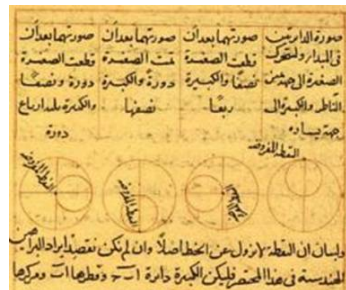 صورة الدايرتين
فى المبدا ولتتحرك
الصغيرة الى
الناظر والكبيرة الى
جهة يساره
صورتهما بعد أن
قطعت الصغيرة
نصفًا والكبيرة
ربعًا
صورتهما بعد أن
تمت الصغيرة
دورةً والكبيرة
نصفها
صورتهما بعد أن
قطعت الصغيرة
دورة ونصفا
والكبيرة ثلثة ارباع
دورة
النقطة المفروضة
النقطة المفروضة
النقطة المفروضة
ولبيان ان النقطة لا تزول عن الخط اصلاً وان لم نكن نقصد ايراد البراهين
الهندسية فى هذا المختصر فليكن الكبيرة دايرة اب وقطرها اب ومركزها